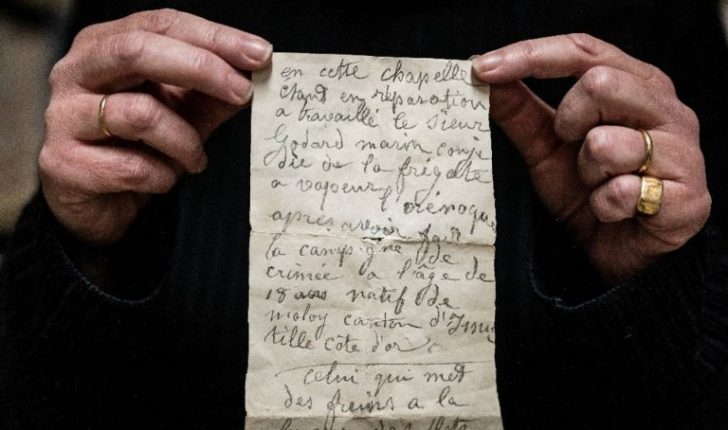 en cette chapelle
étant en réparation
a travaillé le sieur
Godard maron conje
die de la frégate
a vapeur l'orénoque
après avoir fait
la campagne de
crimée a l'âge de
18 ans natif de
moloy canton d'Issu
tille côte d'or.
Celui qui met
des freins a la
des flots